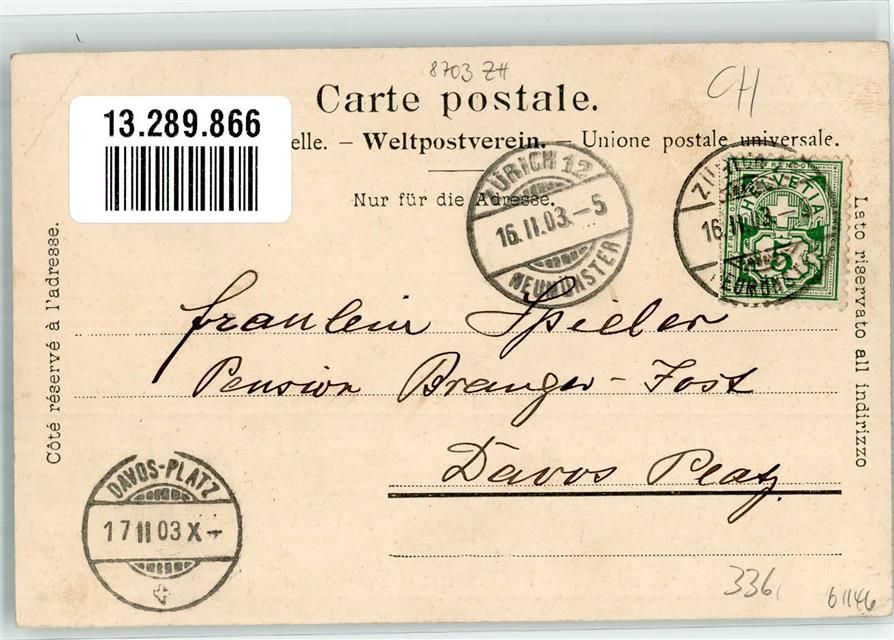 8703 ZH
CH
Carte postale.
13.289.866
elle. – Weltpostverein. – Unione postale universale.
Nur für die Adresse.
ZÜRICH 12
16.II.03.–5
NEUMÜNSTER
16.II.03.–
HELVETIA
5
Côté réservé à l'adresse.
Lato riservato all indirizzo
fraulein Spieler
Pension Branger-Jost
Davos Platz
DAVOS-PLATZ
17 II 03 X–
336
61146